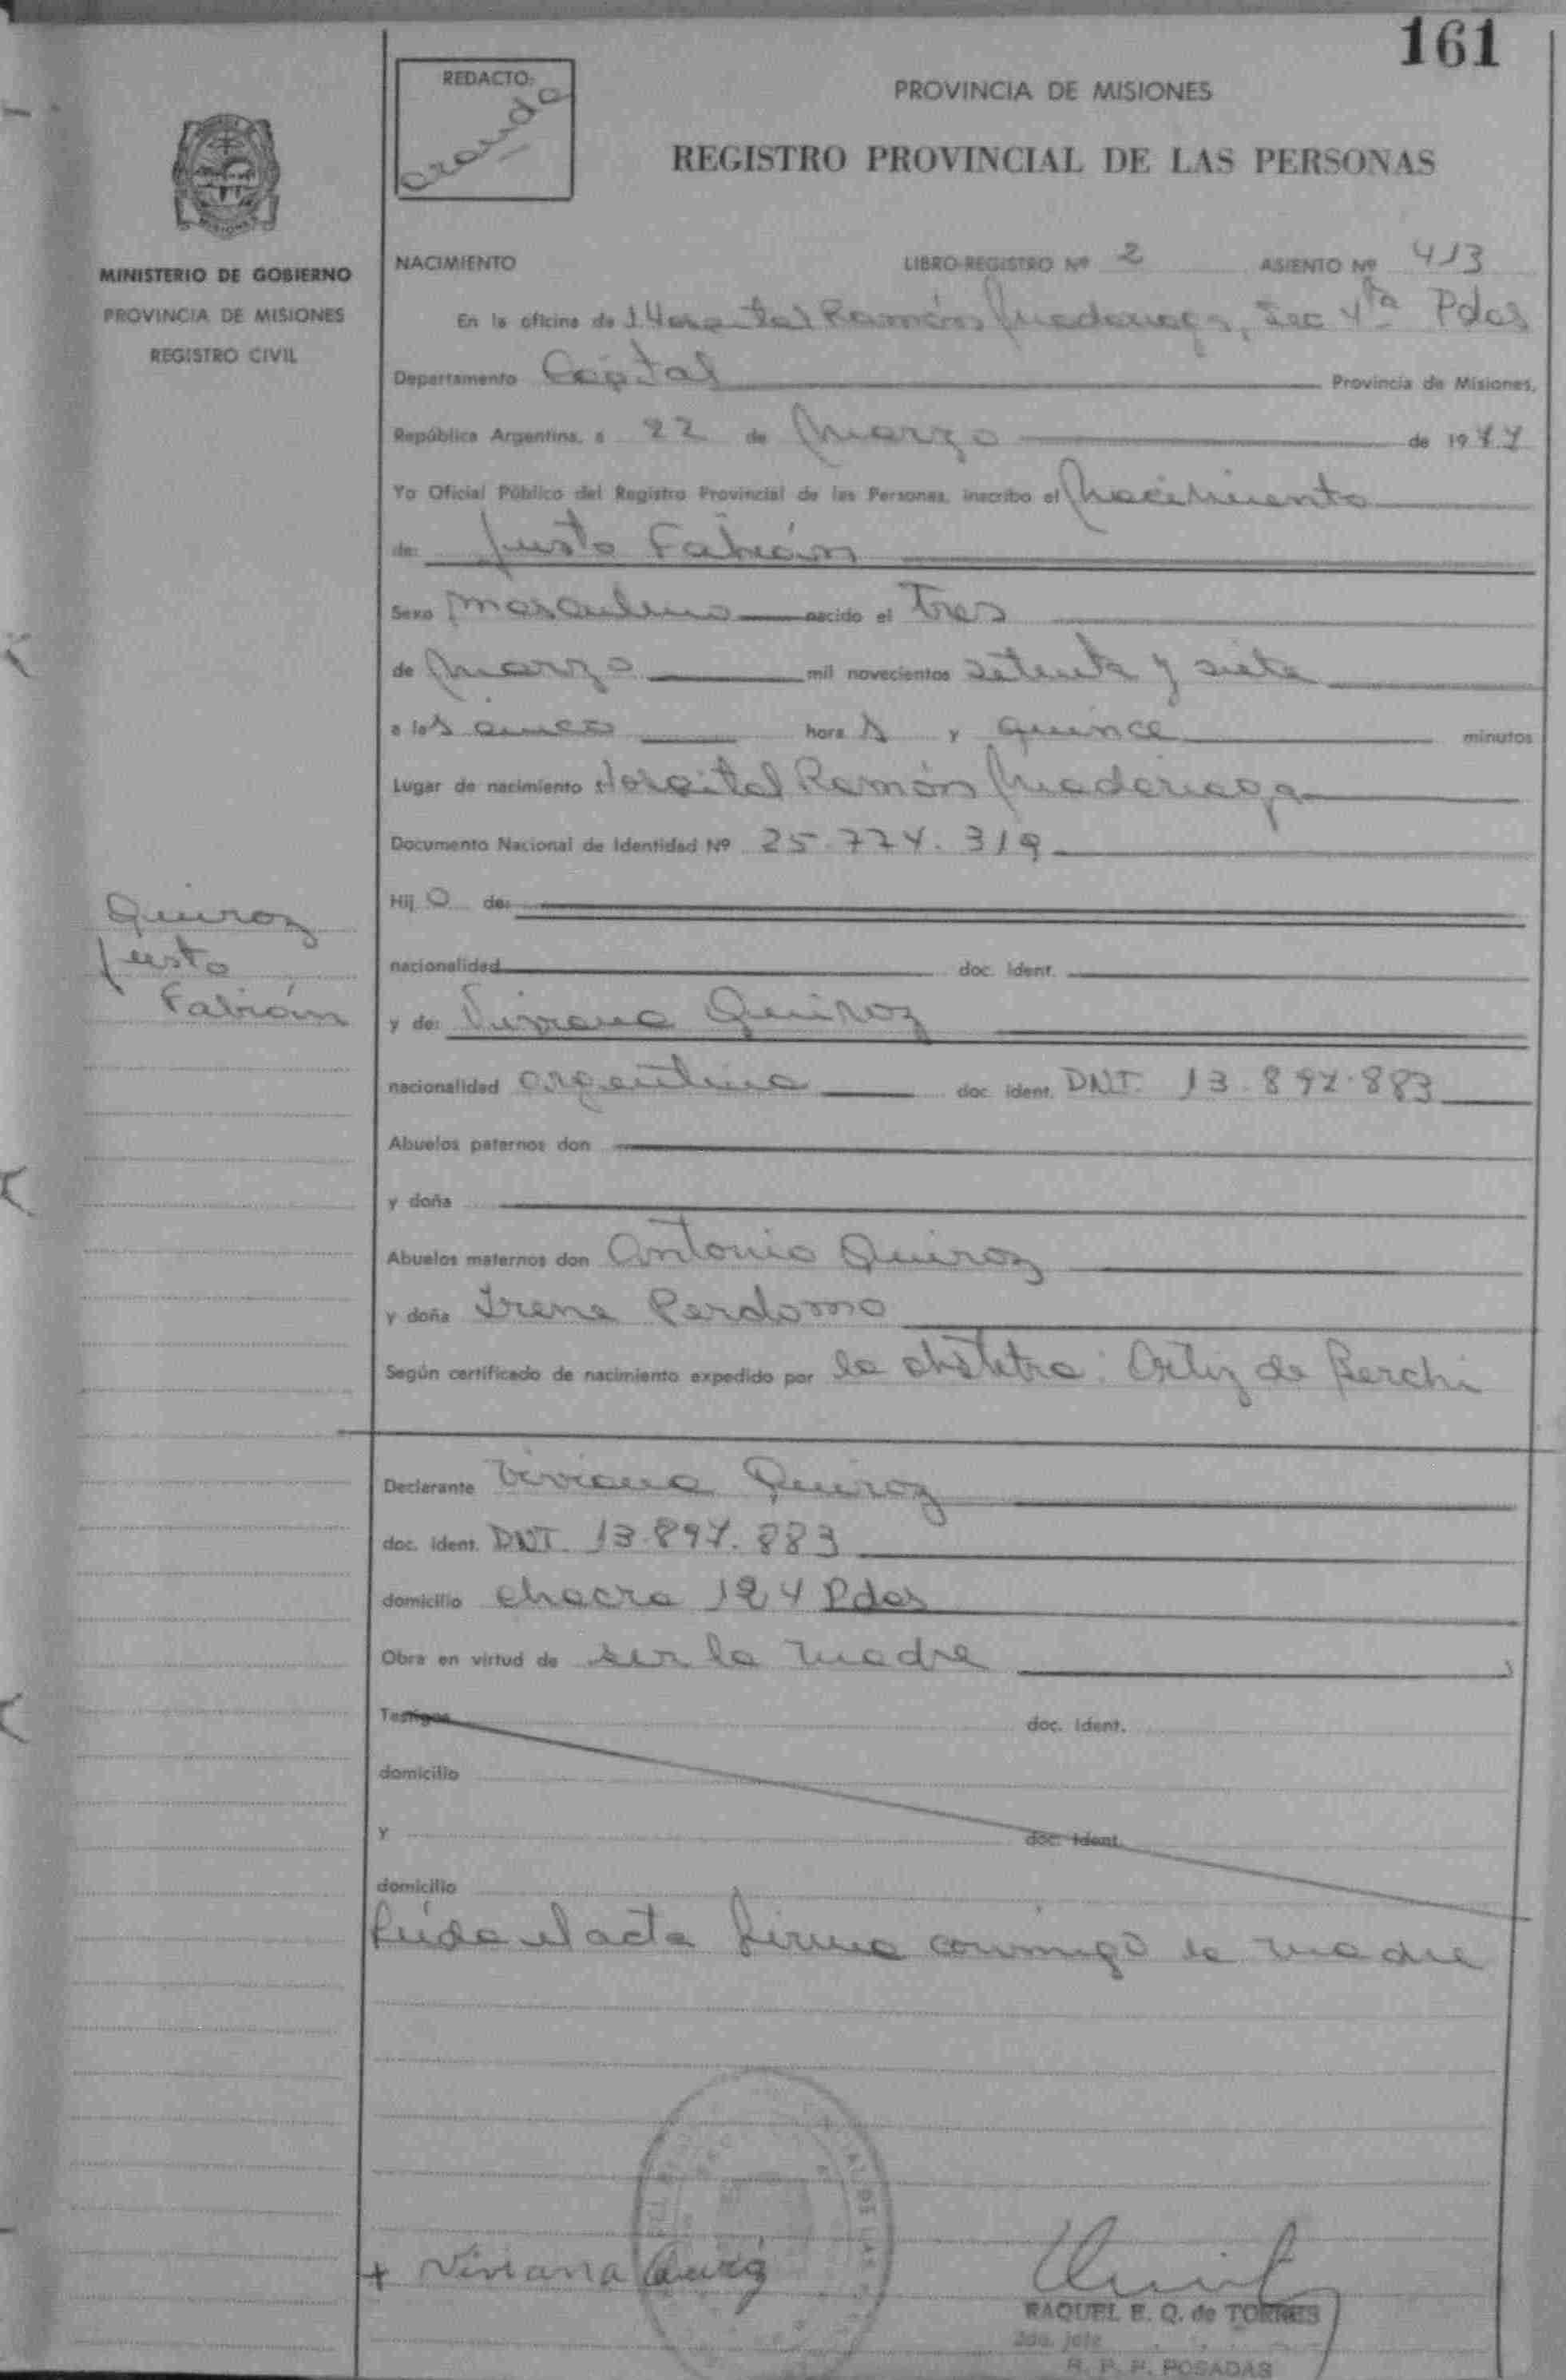 161
REDACTO:
Aranda
PROVINCIA DE MISIONES
REGISTRO PROVINCIAL DE LAS PERSONAS
MINISTERIO DE GOBIERNO
PROVINCIA DE MISIONES
REGISTRO CIVIL
NACIMIENTO LIBRO-REGISTRO Nº 2 ASIENTO Nº 413
En la oficina de Hospital Ramón Madariaga, Sec 4ta Pdas
Departamento Capital Provincia de Misiones,
República Argentina, a 22 de Marzo de 1977
Yo Oficial Público del Registro Provincial de las Personas, inscribo el Nacimiento
de: Justo Fabián
Sexo masculino nacido el Tres
de Marzo mil novecientos setenta y siete
a las cinco hora s y quince minutos
Lugar de nacimiento Hospital Ramón Madariaga
Documento Nacional de Identidad Nº 25.774.319
Hij o de:
Quiroz
Justo
Fabián
nacionalidad doc. Ident.
y de: Viviana Quiroz
nacionalidad argentina doc. ident. DNI. 13.897.883
Abuelos paternos don
y doña
Abuelos maternos don Antonio Quiroz
y doña Irene Perdomo
Según certificado de nacimiento expedido por la obstetra: Ortiz de Berchi
Declarante Viviana Quiroz
doc. ident. DNI. 13.897.883
domicilio chacra 124 Pdas
Obra en virtud de ser la madre
Testigos doc. Ident.
domicilio
Y doc. Ident.
domicilio
Leída el acta firma conmigo la madre
+ Viviana
RAQUEL E. Q. de TORRES
2da. Jefe
R. P. P. POSADAS